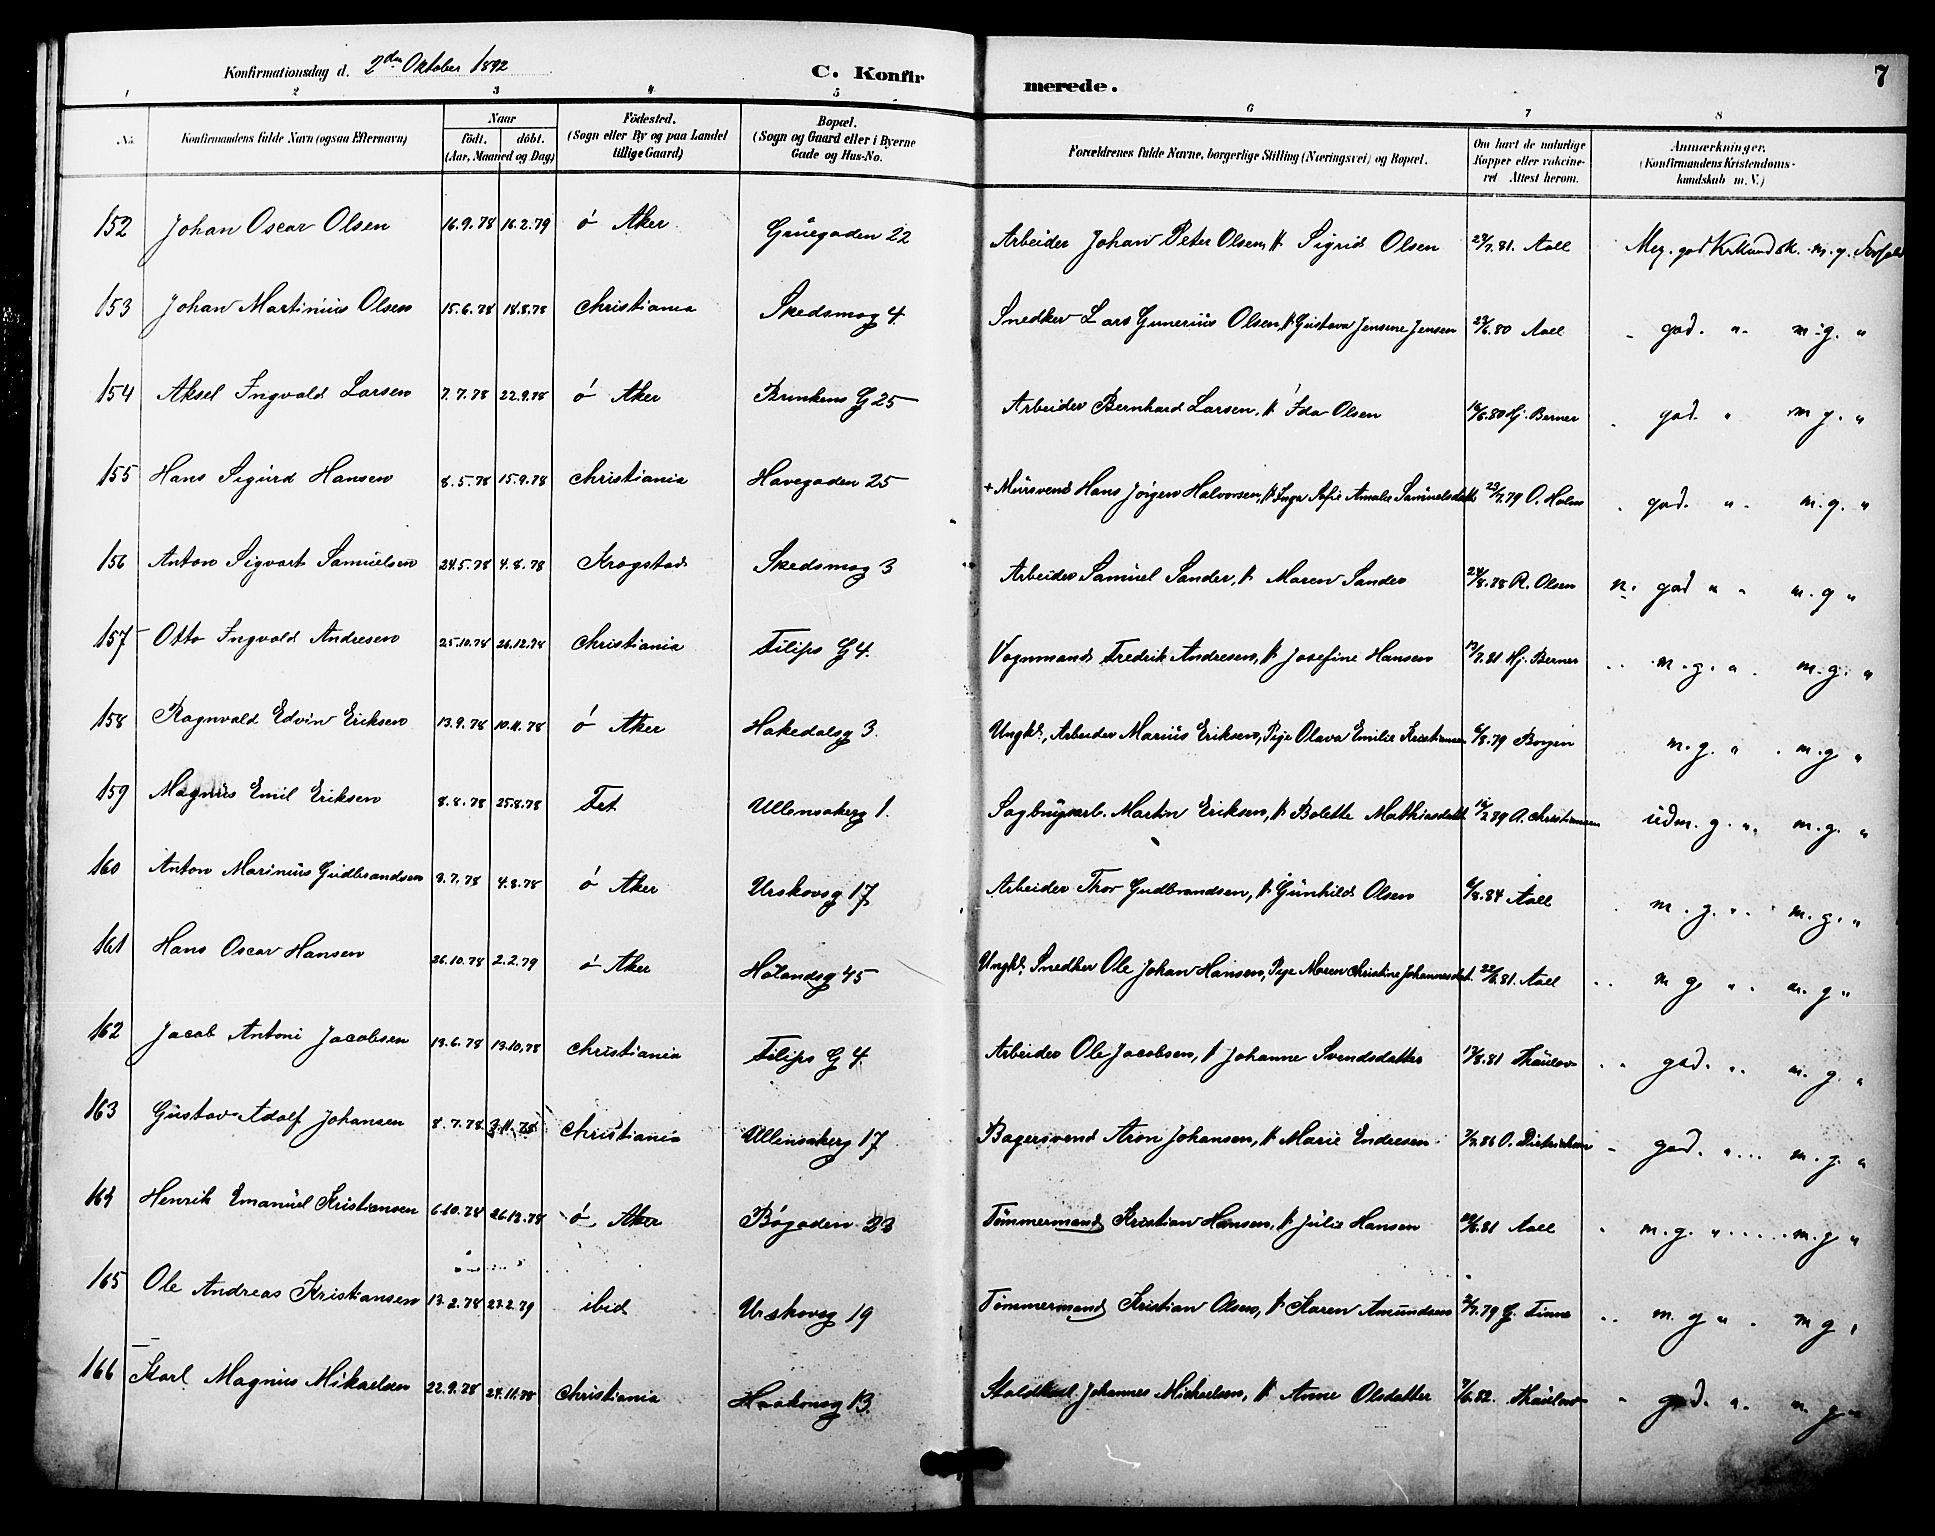 Konfirmationsdag d. 2den Oktober 1892 C. Konfirmerede. 7
1 2 3 4 5 6 7 8
No. Konfirmandens fulde Navn (ogsaa Efternavn) Naar födt. döbt. (Aar, Maaned og Dag) Födested. (Sogn eller By og paa Landet tillige Gaard) Bopæl. (Sogn og Gaard eller i Byerne Gade og Hus-No. Forældrenes fulde Navne, borgerlige Stilling (Næringsvei) og Bopæl. Om havt de naturlige Kopper eller vakcineret Attest herom. Anmærkninger. (Konfirmandens Kristendomskundskab m. V.)
152 Johan Oscar Olsen 16.9.78 16.2.79 ö Aker Grüegaden 22 Arbeider Johan Peter Olsen, & Sigrid Olsen 29/7.81 Aall Meg. god Krkundsk. m. g. Forhold
153 Johan Martinius Olsen 15.6.78 18.8.78 Christiania Skedsmog 4. Snedker Lars Gunerius Olsen, & Gustava Jensine Jensen 22/6.80 Aall god. " m. g. "
154 Aksel Ingvald Larsen 7.7.78 22.9.78 ö Aker Brinkens G 25 Arbeider Bernhard Larsen, & Ida Olsen 16/6.80 Hj. Berner god. " m g. "
155 Hans Sigurd Hansen 8.5.78 15.9.78 Christiania Havegaden 25 + Mürsvend Hans Jörgen Halvorsen, & Inga Sofie Amalie Samüelsdatt. 23/7.79 O. Holm god. " m. g. "
156 Anton Sigvart Samüelsen 24.5.78 4.8.78 Krogstad Skedsmog 3 Arbeider Samüel Sander, & Maren Sander 24/8.78 R. Olsen n. god " " m. g "
157 Otto Ingvald Andresen 25.10.78 26.12.78 Christiania Filips G 4. Vognmand Fredrik Andresen, & Josefine Hansen 13/7.81 Hj. Berner m. g. " m. g. "
158 Ragnvald Edvin Eriksen 13.9.78 10.11.78 ö Aker Hakedalsg 3. Ungk., Arbeider Marius Eriksen, Pige Olava Emilie Kristiansen 6/8.79 Borgen m. g. " m. g "
159 Magnus Emil Eriksen 8.8.78 25.8.78 Fet Ullensakerg 1. Sagbrugsarb. Martin Eriksen, & Bolette Mathiasdatt. 14/2.89 A. Christiansen udm. g. " m. g. "
160 Anton Marinius Gudbrandsen 9.7.78 4.8.78 ö Aker Urskovsg 17 Arbeider Thor Gudbrandsen, & Günhild Olsen 6/8.84 Aall m. g. " m. g. "
161 Hans Oscar Hansen 26.10.78 2.2.79 ö Aker Hölandsg 45 Ungk. Snedker Ole Johan Hansen, Pige Maren Christine Johannesdat. 22/6.81. Aall m g " m. g "
162 Jacob Antoni Jacobsen 13.6.78 13.10.78 Christiania Filips G 4. Arbeider Ole Jacobsen, & Johanne Svendsdatter 17/8.81 Thaulow god. " m. g. "
163 Güstav Adolf Johansen 8.7.78 3.11.78 Christiania Ullensakerg 17 Bagersvend Aron Johansen, & Marie Endresen 7/7.86 O. Dietrichson god. " m. g. "
164 Henrik Emanüel Kristiansen 6.10.78 26.12.78 ö Aker Bögaden 23 Tömmermand Kristian Hansen, & Jülie Hansen 20/6.81 Aall m. g. " m. g "
165 Ole Andreas Kristiansen 13.2.78 23.2.79 ibid Urskovsg 19 Tömmermand Kristian Olsen, & Karen Amundsen 2/7.79 G. Finne m. g " m g "
166 Karl Magnus Mikaelsen 22.9.78 24.11.78 Christiania Haakonsg 13. Staldkarl Johannes Michaelsen, & Anne Olsdatter 7/6.82. Thaulow god. " m. g "